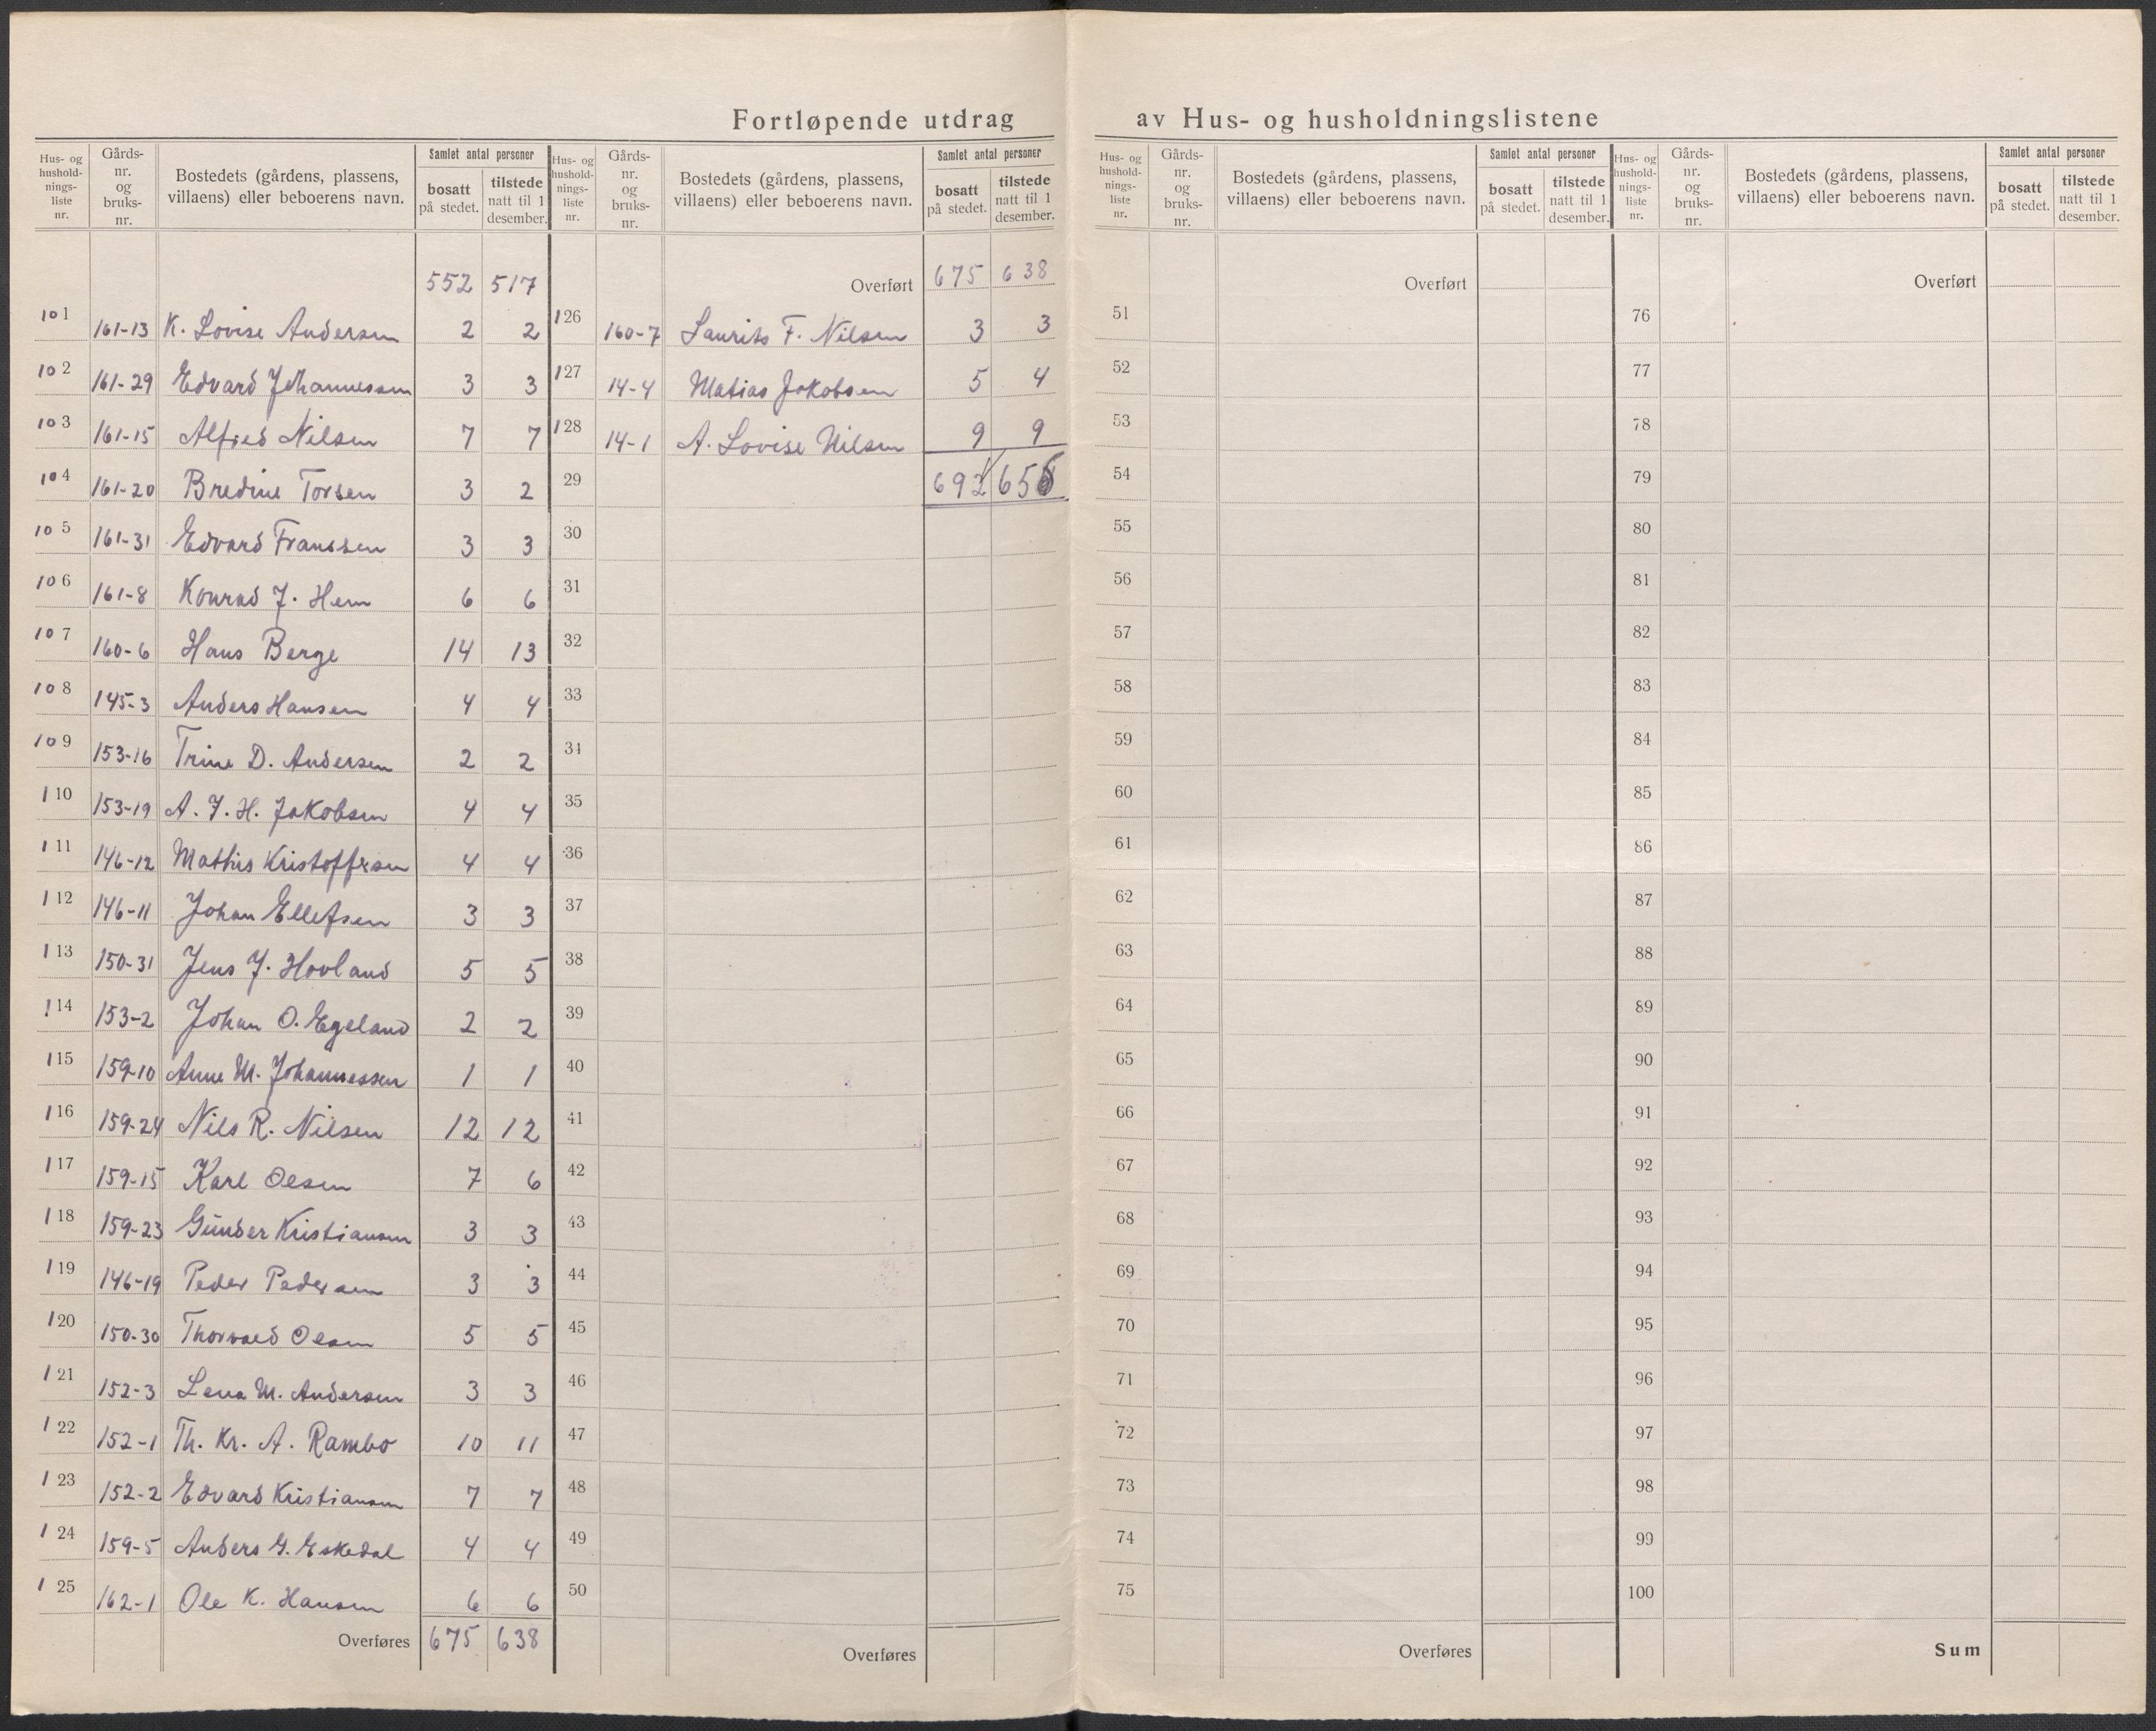 Fortløpende utdrag av Hus- og husholdningslistene
Hus- og husholdnings-liste nr. | Gårds-nr. og bruks-nr. | Bostedets (gårdens, plassens, villaens) eller beboerens navn. | Samlet antal personer | bosatt på stedet. | tilstede natt til 1 desember.
552 517
101 161-13 K. Lovise Andersen 2 2
102 161-29 Edvard Johannessen 3 3
103 161-15 Alfred Nilsen 7 7
104 161-20 Bredine Torsen 3 2
105 161-31 Edvard Franssen 3 3
106 161-8 Konrad J. Hem 6 6
107 160-6 Hans Berge 14 13
108 145-3 Anders Hansen 4 4
109 153-16 Trine D. Andersen 2 2
110 153-19 A. J. H. Jakobsen 4 4
111 146-12 Mathis Kristoffersen 4 4
112 146-11 Johan Ellefsen 3 3
113 150-31 Jens J. Hovland 5 5
114 153-2 Johan O. Egeland 2 2
115 159-10 Anne M. Johannessen 1 1
116 159-24 Nils R. Nilsen 12 12
117 159-15 Karl Olsen 7 6
118 159-23 Gunder Kristiansen 3 3
119 146-19 Peder Pedersen 3 3
120 150-30 Thorvald Olsen 5 5
121 152-3 Lena M. Andersen 3 3
122 152-1 Th. Kr. A. Rambo 10 11
123 152-2 Edvard Kristiansen 7 7
124 159-5 Anders G. Eskedal 4 4
125 162-1 Ole K. Hansen 6 6
Overføres 675 638
Hus- og husholdnings-liste nr. | Gårds-nr. og bruks-nr. | Bostedets (gårdens, plassens, villaens) eller beboerens navn. | Samlet antal personer | bosatt på stedet. | tilstede natt til 1 desember.
Overført 675 638
126 160-7 Laurits F. Nilsen 3 3
127 14-4 Matias Jakobsen 5 4
128 14-1 A. Lovise Nilsen 9 9
29 692 65
30
31
32
33
34
35
36
37
38
39
40
41
42
43
44
45
46
47
48
49
50
Overføres
Hus- og husholdnings-liste nr. | Gårds-nr. og bruks-nr. | Bostedets (gårdens, plassens, villaens) eller beboerens navn. | Samlet antal personer | bosatt på stedet. | tilstede natt til 1 desember.
Overført
51
52
53
54
55
56
57
58
59
60
61
62
63
64
65
66
67
68
69
70
71
72
73
74
75
Overføres
Hus- og husholdnings-liste nr. | Gårds-nr. og bruks-nr. | Bostedets (gårdens, plassens, villaens) eller beboerens navn. | Samlet antal personer | bosatt på stedet. | tilstede natt til 1 desember.
Overført
76
77
78
79
80
81
82
83
84
85
86
87
88
89
90
91
92
93
94
95
96
97
98
99
100
Sum